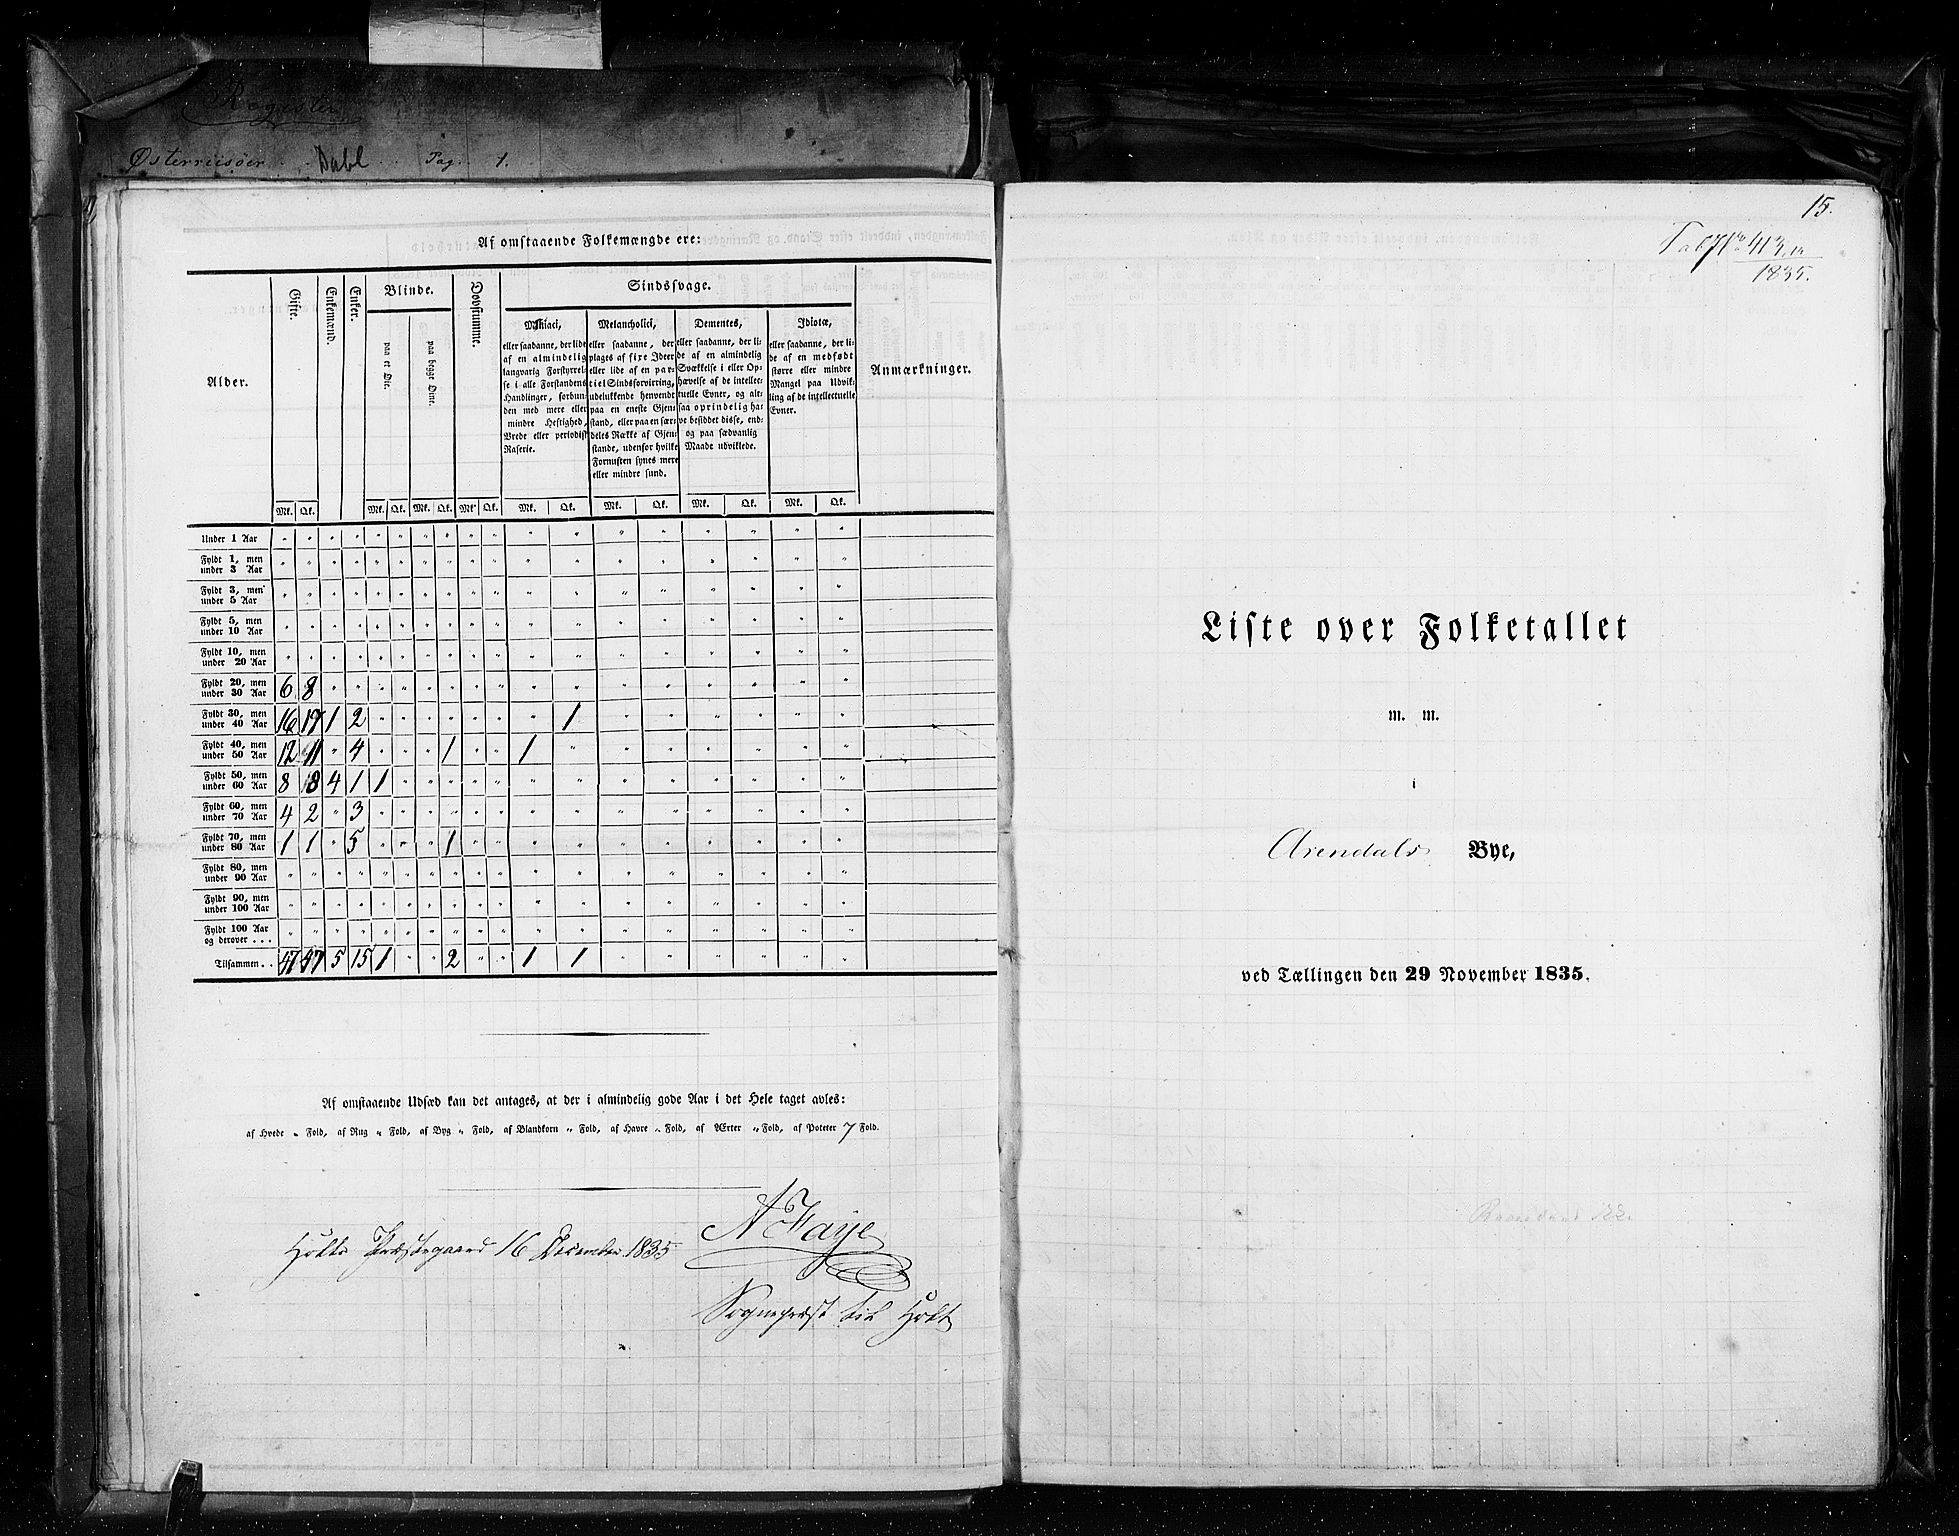 Register
Østerriisöer Dahl Pag. 1.
Af omstaaende Folkemængde ere:
Alder. Gifte. Enkemænd. Enker. Blinde. Dovstumme. Sindssvage. Anmærkninger.
paa et Øie. paa begge Øine.
Maniaci, eller saadanne, der lide af en almindelig langvarig Forstyrrelse i alle Forstandens Handlinger, forbunden med mere eller mindre Heftighed, Vrede eller periodisk Raserie.
Melancholici, eller saadanne, der plages af fixe Ideer eller lide af en partiel Sindsforvirring, udelukkende henvendt paa en eneste Gjenstand, eller paa en særdeles Række af Gjenstande, udenfor hvilke Fornuften synes mere eller mindre sund.
Dementes, eller saadanne, der lide af en almindelig Svækkelse i eller Ophævelse af de intellectuelle Evner, og altsaa oprindelig have besiddet disse, endog paa sædvanlig Maade udviklede.
Idiotæ, eller saadanne, der lide af en medfødt større eller mindre Mangel paa Udvikling af de intellectuelle Evner.
Mk. Qk. Mk. Qk. Mk. Qk. Mk. Qk. Mk. Qk. Mk. Qk. Mk. Qk. Mk. Qk.
Under 1 Aar " " " " " " " " " " " " " " " " " "
Fyldt 1, men under 3 Aar " " " " " " " " " " " " " " " " " "
Fyldt 3, men under 5 Aar " " " " " " " " " " " " " " " " " "
Fyldt 5, men under 10 Aar " " " " " " " " " " " " " " " " " "
Fyldt 10, men under 20 Aar " " " " " " " " " " " " " " " " " "
Fyldt 20, men under 30 Aar 6 8 " " " " " " " " " " " " " " " "
Fyldt 30, men under 40 Aar 16 17 1 2 " " " " " " " 1 " " " " " "
Fyldt 40, men under 50 Aar 12 11 " 4 " " " 1 " " 1 " " " " " " "
Fyldt 50, men under 60 Aar 8 8 4 1 1 " " " " " " " " " " " " "
Fyldt 60, men under 70 Aar 4 2 " 3 " " " " " " " " " " " " " "
Fyldt 70, men under 80 Aar 1 1 " 5 " " " 1 " " " " " " " " " "
Fyldt 80, men under 90 Aar " " " " " " " " " " " " " " " " " "
Fyldt 90, men under 100 Aar " " " " " " " " " " " " " " " " " "
Fyldt 100 Aar og derover . . . " " " " " " " " " " " " " " " " " "
Tilsammen . . 47 47 5 15 1 " " 2 " " 1 1 " " " " " "
Af omstaaende Udsæd kan det antages, at der i almindelig gode Aar i det Hele taget avles:
af Hvede " Fold, af Rug " Fold, af Byg " Fold, af Blandkorn " Fold, af Havre " Fold, af Ærter " Fold, af Poteter 7 Fold.
Holts Præstegaard 16 December 1835
A Faye
Sognepræst til Holt
15.
1835.
Liste over Folketallet
m. m.
i
Arendals Bye,
ved Tællingen den 29 November 1835.